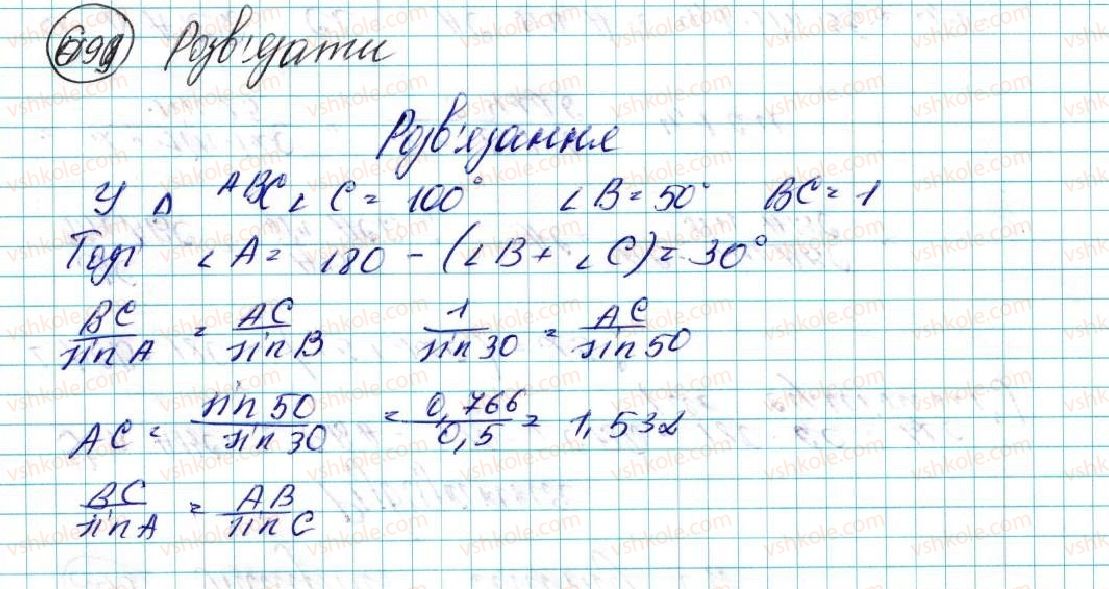 699 Розв'язати
Розв'язання
У △ ABC ∠ C = 100° ∠ B = 50° BC = 1
Тоді ∠ A = 180 - (∠ B + ∠ C) = 30°
BC/sin A = AC/sin B 1/sin 30 = AC/sin 50
AC = sin 50/sin 30 = 0,766/0,5 = 1,532
BC/sin A = AB/sin C